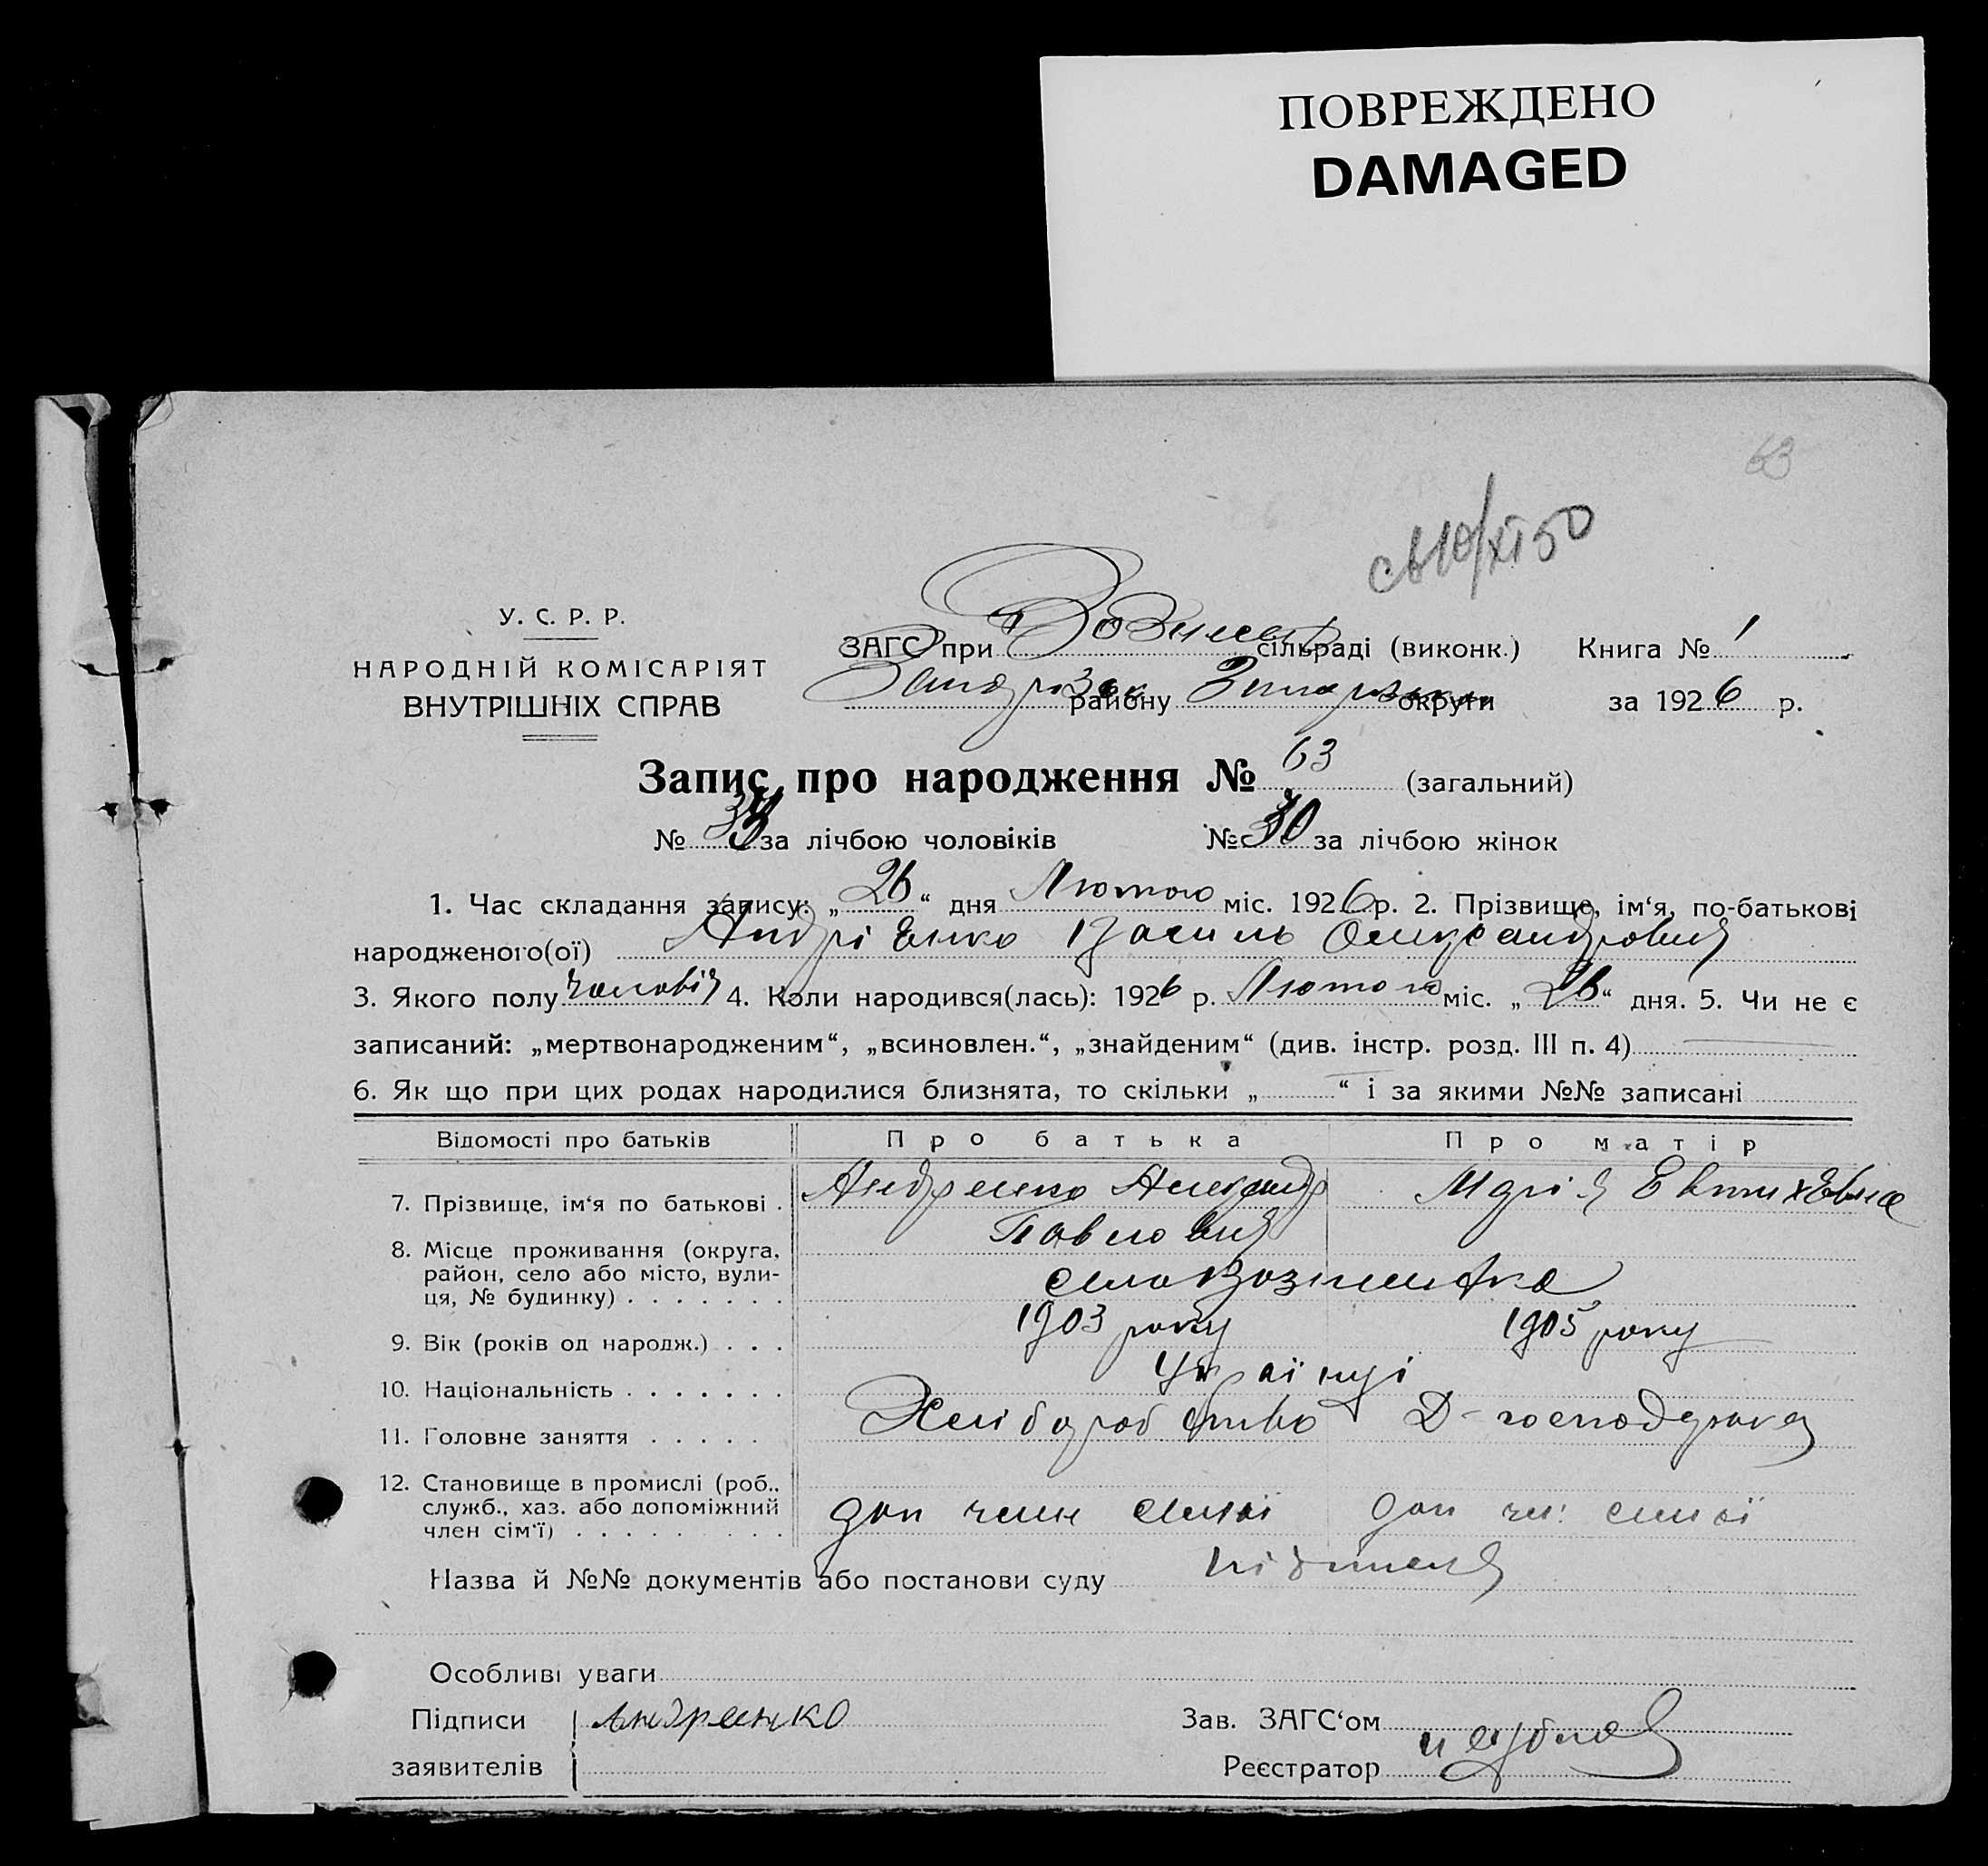 ПОВРЕЖДЕНО
DAMAGED
63
св 10/XI 50
У. С. Р. Р.
НАРОДНІЙ КОМІСАРІЯТ
ВНУТРІШНІХ СПРАВ
ЗАГС при сільраді (виконк.) Книга № 1
району округи за 1926 р.
Запис про народження № 63 (загальний)
№ 33 за лічбою чоловіків № 30 за лічбою жінок
1. Час складання запису: „26“ дня Лютого міс. 1926 р. 2. Прізвище, ім‘я, по-батькові
народженого(ої) Андріенко Василь Олександрович
3. Якого полу чоловіч 4. Коли народився(лась): 1926 р. Лютого міс. „26“ дня. 5. Чи не є
записаний: „мертвонародженим“, „всиновлен.“, „знайденим“ (див. інстр. розд. III п. 4)
6. Як що при цих родах народилися близнята, то скільки „ “ і за якими №№ записані
Відомості про батьків Про батька Про матір
7. Прізвище, ім‘я по батькові . Андреенко Александр Марія Евтихевна
Павлович
8. Місце проживання (округа, район, село або місто, вули-ця, № будинку) . . . . . . . село
9. Вік (років од народж.) . . . 1903 року 1905 року
10. Національність . . . . . . . Українці
11. Головне заняття . . . . . Хліборобство Д-господарка
12. Становище в промислі (роб.. служб., хаз. або допоміжний член сім‘ї) . . . . . . . . . доп член сим'ї доп чл: сим'ї
Назва й №№ документів або постанови суду
Особливі уваги
Підписи Андреенко Зав. ЗАГС‘ом
заявителів Реєстратор